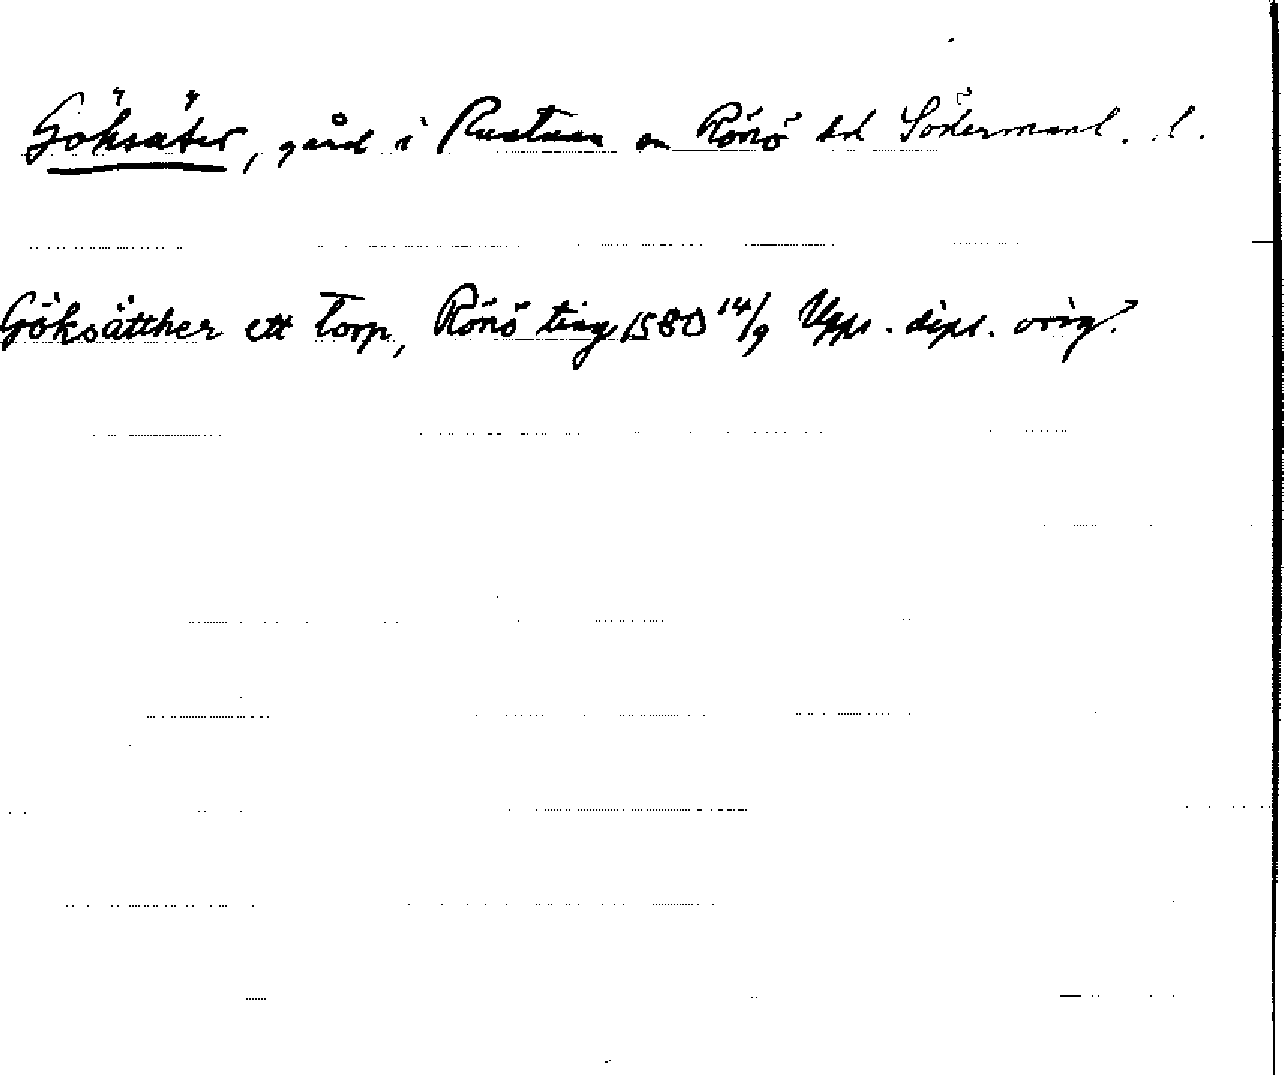 Göksäter, gård i Runtuna sn Rönö hd Södermanl. l.
Göksätther ett Torp, Rönö ting 1580 14/9 Upps. dipl. orig.